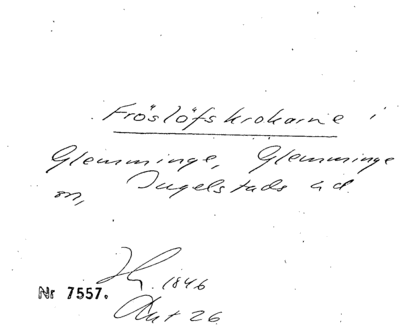 Fröslöfskrokarne i
Glemminge, Glemminge
sn, Ingelstads hd
1846
Nr 7557.
Akt 26